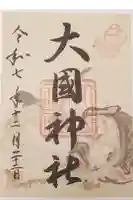 大國神社
令和七年十二月二十三日